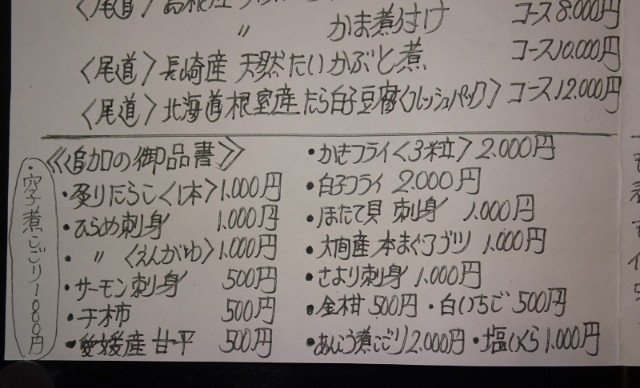 〈尾道〉島根産
〃 かま煮付け コース8.000円
〈尾道〉長崎産 天然たいかぶと煮 コース10.000円
〈尾道〉北海道根室産たら白子豆腐〈フレッシュパック〉 コース12.000円
《追加の御品書》
・炙りたらこ〈1本〉1.000円
・ひらめ刺身 1.000円
・〃〈えんがわ〉1.000円
・サーモン刺身 500円
・干柿 500円
・愛媛産 甘平 500円
・かきフライ〈3粒〉2.000円
・白子フライ 2.000円
・ほたて貝 刺身 1.000円
・大間産本まぐろブツ 1.000円
・さより刺身 1.000円
・金柑 500円 ・白いちご 500円
・あんこう煮こごり2.000円 ・塩いくら1.000円
・穴子煮こごり1.800円